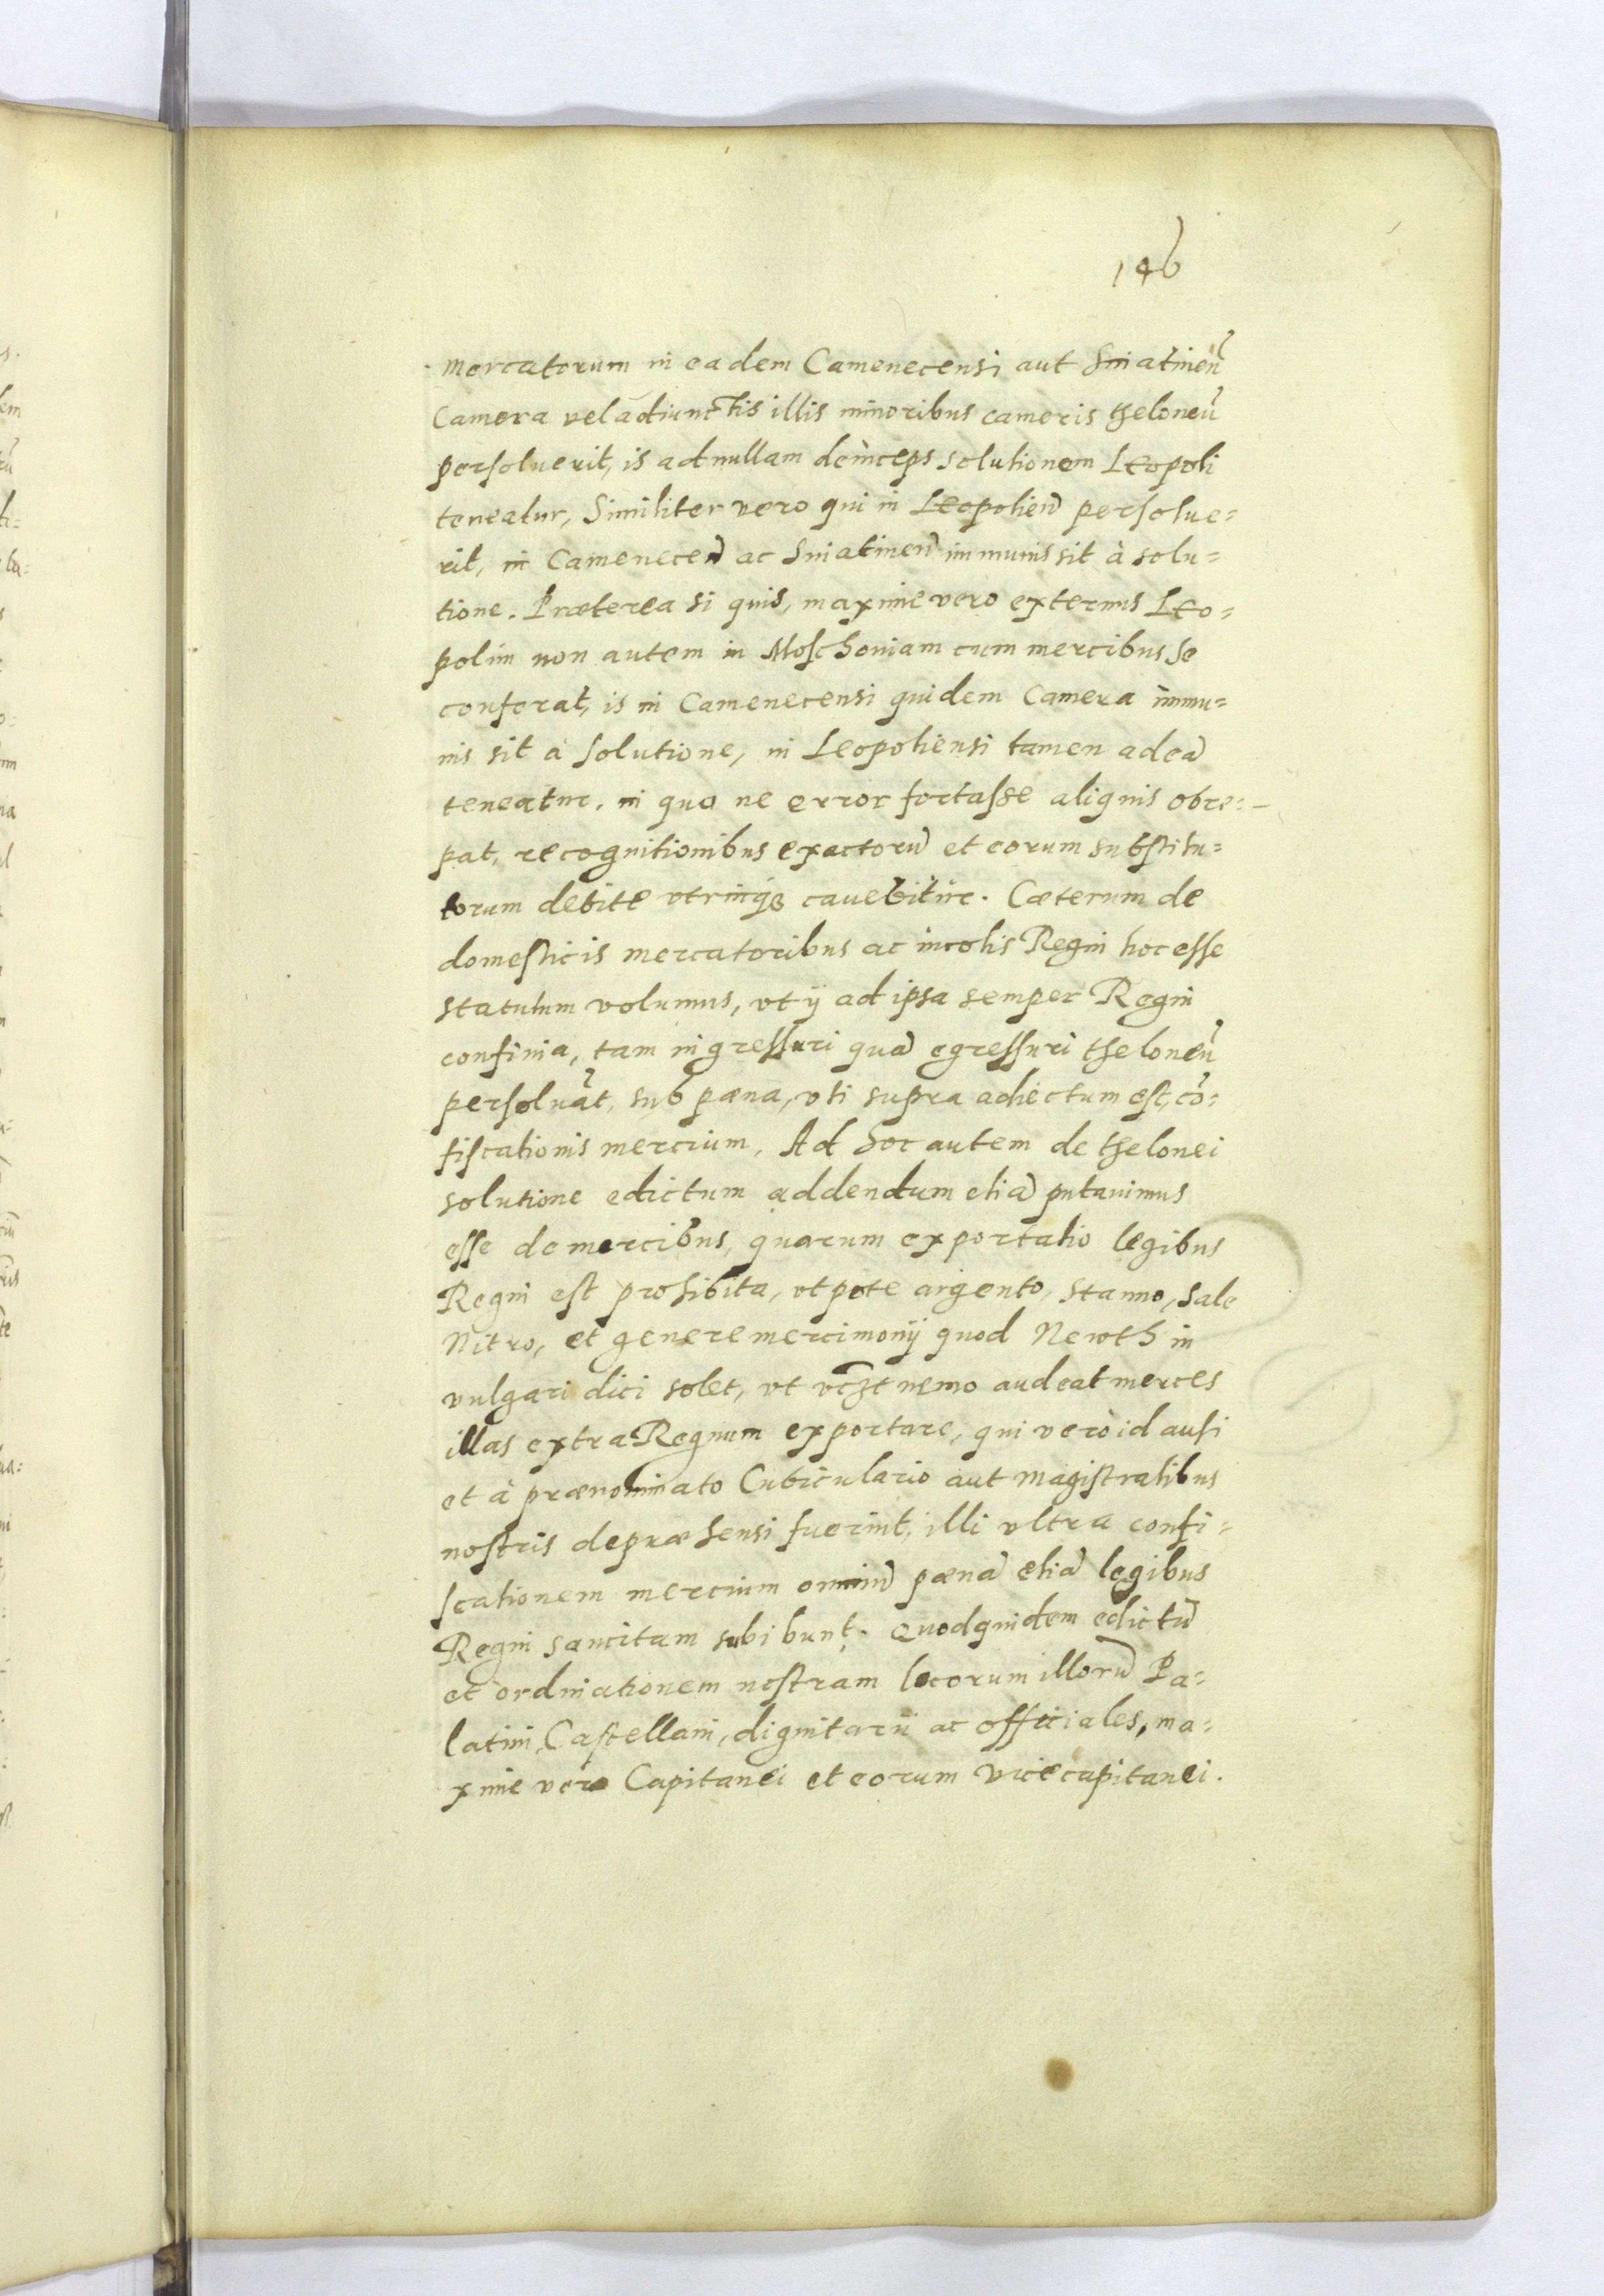 146
mercatorum in eadem Camenecensi aut Sniatineñ
Camera vel adiunctis illis minoribus cameris theloneũ
persoluerit, is ad nullam deinceps solutionem Leopoli
teneatur, Similiter vero qui in Leopolieñ persolue=
rit, in Camenecеñ ac Sniatineñ immunis sit à solu=
tione. Præterea si quis, maxime vero externus Leo=
polim non autem in Moschouiam cum mercibus se
conferat, is in Camenecensi quidem Camera immu=
nis sit à solutione, in Leopoliensi tamen ad eã
teneatur, in quo ne error fortasse aliquis obre=
pat, recognitionibus exactorũ et eorum substitu=
torum debite vtrinqȝ cauebitur. Cæterum de
domesticis mercatoribus ac incolis Regni hoc esse
statutum volumus, vt ij ad ipsa semper Regni
confinia, tam ingressuri quã egressuri theloneũ
persoluãt, sub pæna, vti supra adiectum est, cõ=
fiscationis mercium, Ad hoc autem de thelonei
solutione edictum addendum etiã putauimus
esse de mercibus, quarum exportatio legibus
Regni est prohibita, vtpote argento, stanno, sale
Nitro, et genere mercimonij quod Newth in
vulgari dici solet, vt nemo audeat merces
illas extra Regnum exportare, qui verò id ausi
et à prænominato Cubiculario aut magistratibus
nostris depræhensi fuerint, illi vltra confi=
scationem mercium omniũ pænã etiã legibus
Regni sancitam subibunt. Quodquidem edictũ
et ordinationem nostram locorum illorũ Pa=
latini, Castellani, dignitarii ac officiales, ma=
xime vero Capitanei et eorum vicecapitanei.